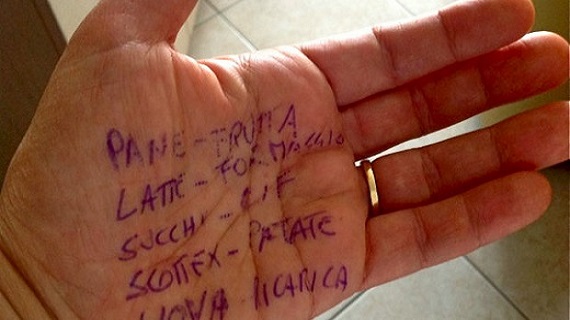 PANE - FRUTTA
LATTE - FORMAGGIO
SUCCHI - CIF
SCOTTEX - PATATE
UOVA